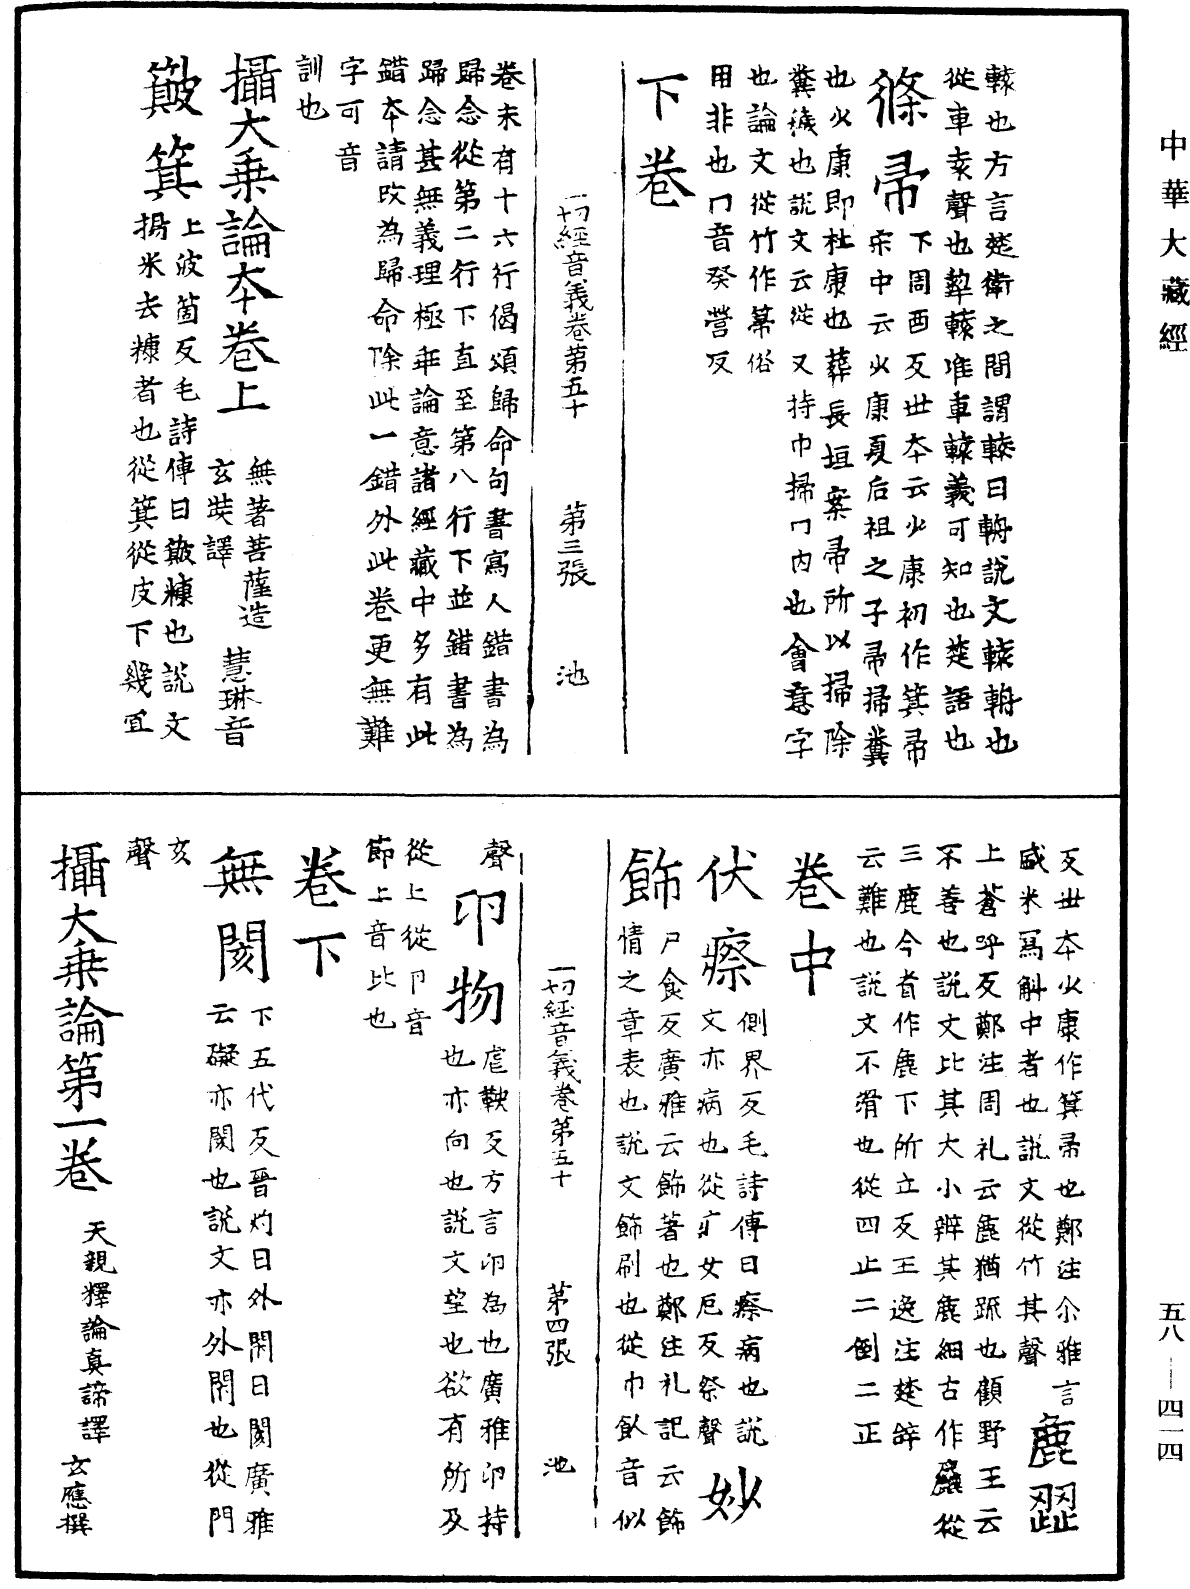 中華大藏經
轅也方言楚衛之間謂轅曰輈說文轅輈也
從車袁聲也犂轅准車轅義可知也楚語也
篠帚
下周酉反世本云少康初作箕帚
宋中云少康夏后祖之子帚掃糞
也少康即杜康也葬長垣案帚所以掃除
糞穢也說文云從又持巾掃冂內也會意字
也論文從竹作箒俗
用非也冂音癸營反
下卷
一切經音義卷第五十 第三張 池
卷末有十六行偈頌歸命句書寫人錯書為
歸念從第二行下直至第八行下並錯書為
歸念甚無義理極乖論意諸經藏中多有此
錯本請改為歸命除此一錯外此卷更無難
字可音
訓也
攝大乘論本卷上
無著菩薩造 慧琳音
玄奘譯
簸箕
上波箇反毛詩傳曰簸糠也說文
揚米去糠者也從箕從皮下幾宜
反世本少康作箕帚也鄭注尒雅言
盛米寫斛中者也說文從竹其聲
麁澀
上蒼呼反鄭注周礼云麁猶踈也顧野王云
不善也說文比其大小辨其麁細古作麤從
三鹿今省作麁下所立反王逸注楚辭
云難也說文不滑也從四止二倒二正
卷中
伏瘵
側界反毛詩傳曰瘵病也說
文亦病也從疒女厄反祭聲
妙飾
尸食反廣雅云飾著也鄭注礼記云飾
情之章表也說文飾刷也從巾飤音似
一切經音義卷第五十 第四張 池
聲
卬物
虐鞅反方言卬為也廣雅卬持
也亦向也說文望也欲有所及
從上從卩音
節上音比也
卷下
無閡
下五代反晉灼曰外閇曰閡廣雅
云礙亦閡也說文亦外閇也從門
亥
聲
攝大乘論第一卷
天親釋論真諦譯 玄應撰
五八—四一四